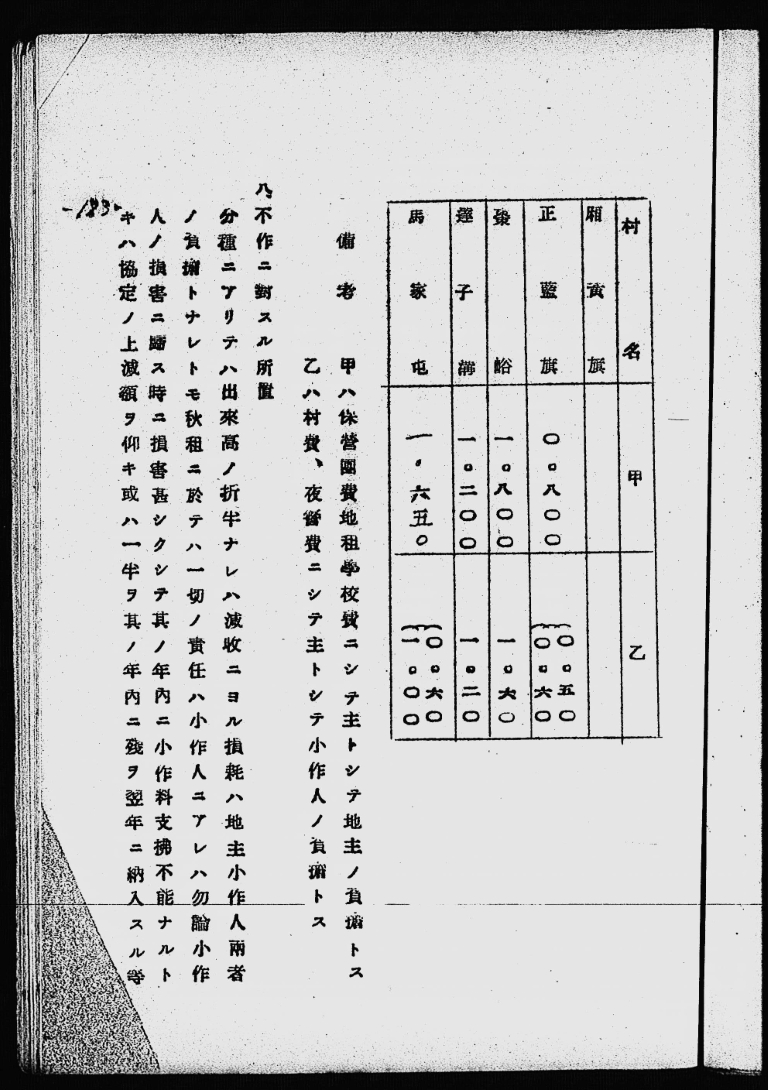 村名 甲 乙
廂黄旗
正藍旗 〇.八〇〇 〇.五〇 〇.六〇
峪 一.八〇〇 一.六〇
蓮子溝 一.二〇〇 一.二〇
馬家屯 一.六五〇 〇.六〇 一.〇〇
備考 甲ハ保營團費地租學校費ニシテ主トシテ地主ノ負擔トス
乙ハ村費、夜警費ニシテ主トシテ小作人ノ負擔トス
八、不作ニ對スル所置
分種ニアリテハ出來高ノ折半ナレハ減收ニヨル損耗ハ地主小作人兩者
ノ負擔トナレトモ秋租ニ於テハ一切ノ責任ハ小作人ニアレハ勿論小作
人ノ損害ニ歸ス時ニ損害甚シクシテ其ノ年內ニ小作料支拂不能ナルト
キハ協定ノ上減額ヲ仰キ或ハ一半ヲ其ノ年內ニ殘ヲ翌年ニ納入スル等
-183-